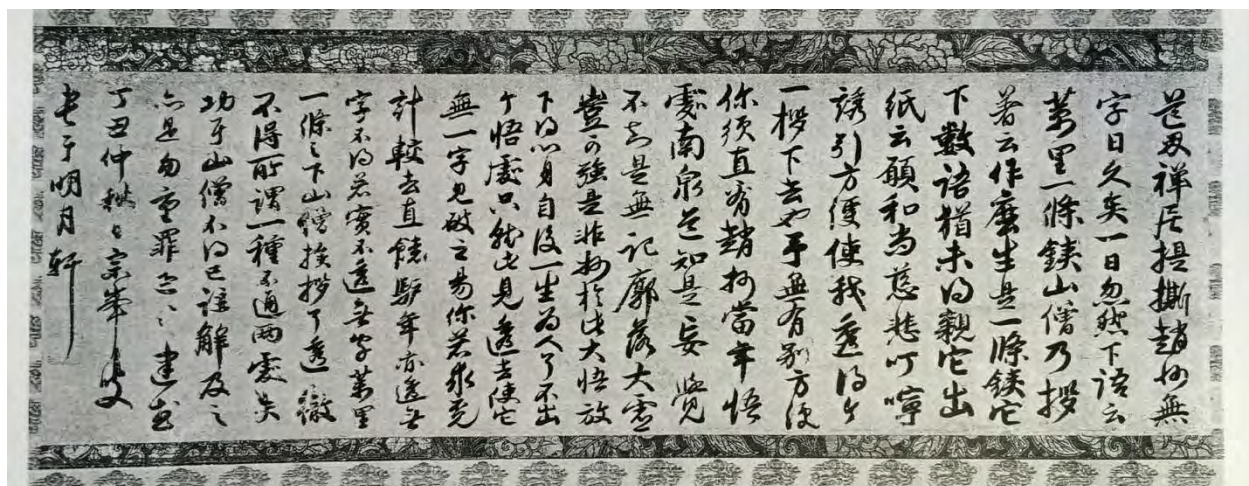 道叟禅居提撕趙州無
字日久矣一日忽然下語云
万里一條鉄山僧乃拶
著云作麼生是一條鉄它
下数語猶未得親它出
紙云願和尚慈悲叮嚀
誘引方便使我透得个
一拶下去也予無有別方便
你須直看趙州當年悟
處南泉道知是妄覺
不知是無記廓落大虚
豈可強是非州於此大悟放
下得心身自後一生為人了不出
个悟處只就此見透去使它
無一字見破之易你若求充
計較去直饒驢年亦透無
字不得若実不透無字萬里
一條之下山僧挨拶了透徹
不得所謂一種不通両處失
功于山僧不得已註解及之
亦是勿重罪
丁丑仲秋日宗峯叟
書于明月軒